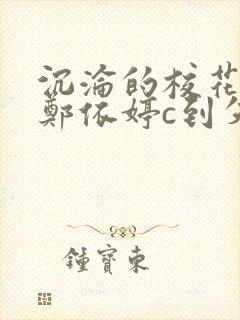 沉淪的校花
鄭依婷c到
鍾寶東